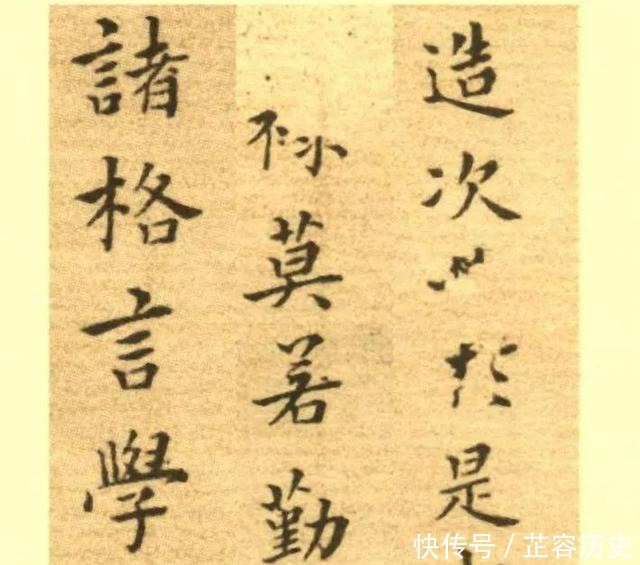 造次必於是
莫若勤
諸格言學
快传号 / 芷容历史